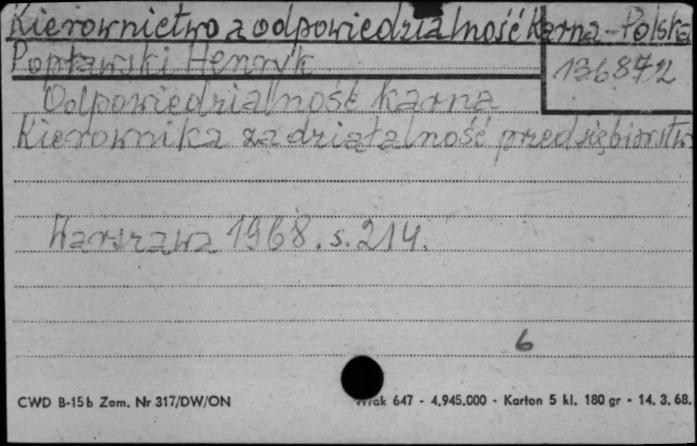 Kierownictwo a odpowiedzialność karna - Polska
Popławski Henryk
136872
Odpowiedzialność karna
Kierownika za działalność przedsiębiorstw
Warszawa 1968. s. 214.
6
CWD B-15b Zam. Nr 317/DW/ON
647 - 4.945.000 - Karton 5 kl. 180 gr - 14. 3. 68.